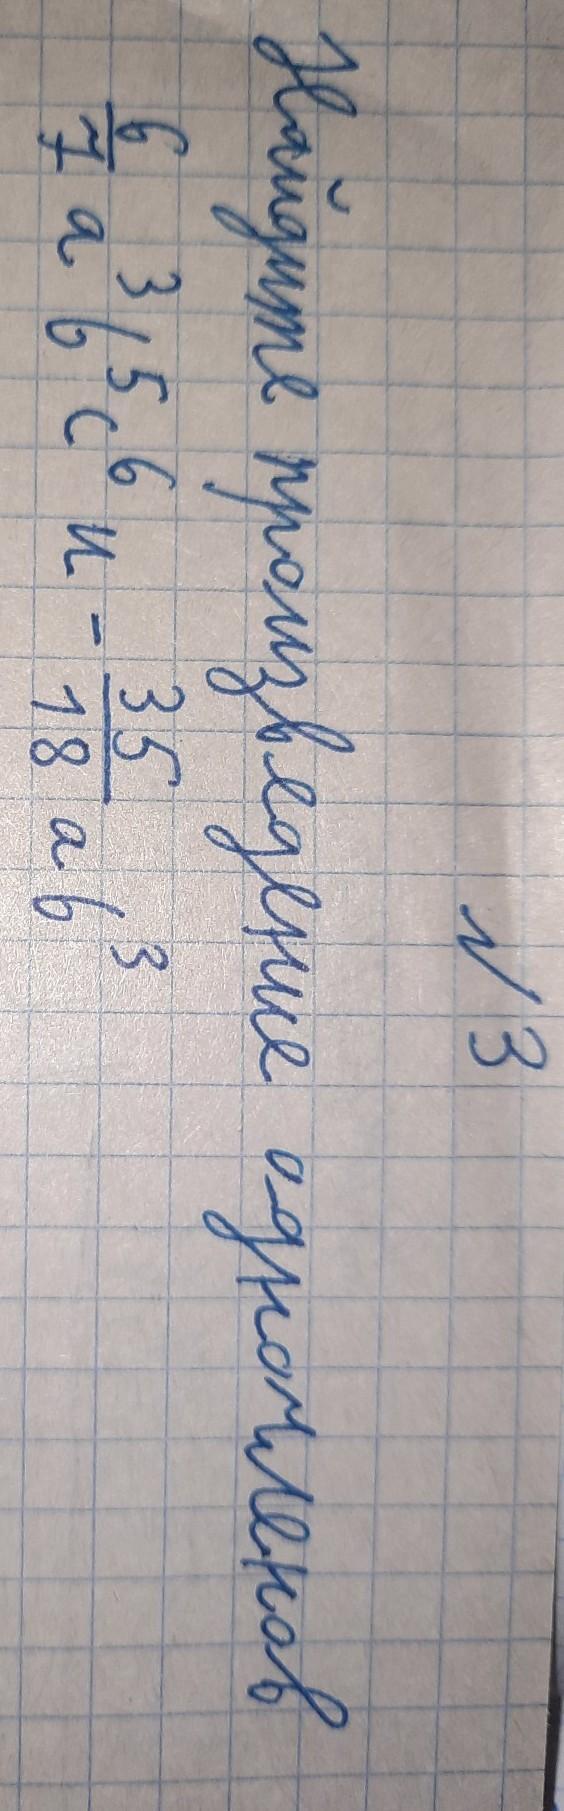 №3
Найдите произведение одночленов
6/7 a³b⁵c⁶ и - 35/18 ab³